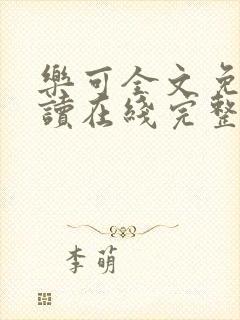 樂可全文免
讀在綫完整
李萌